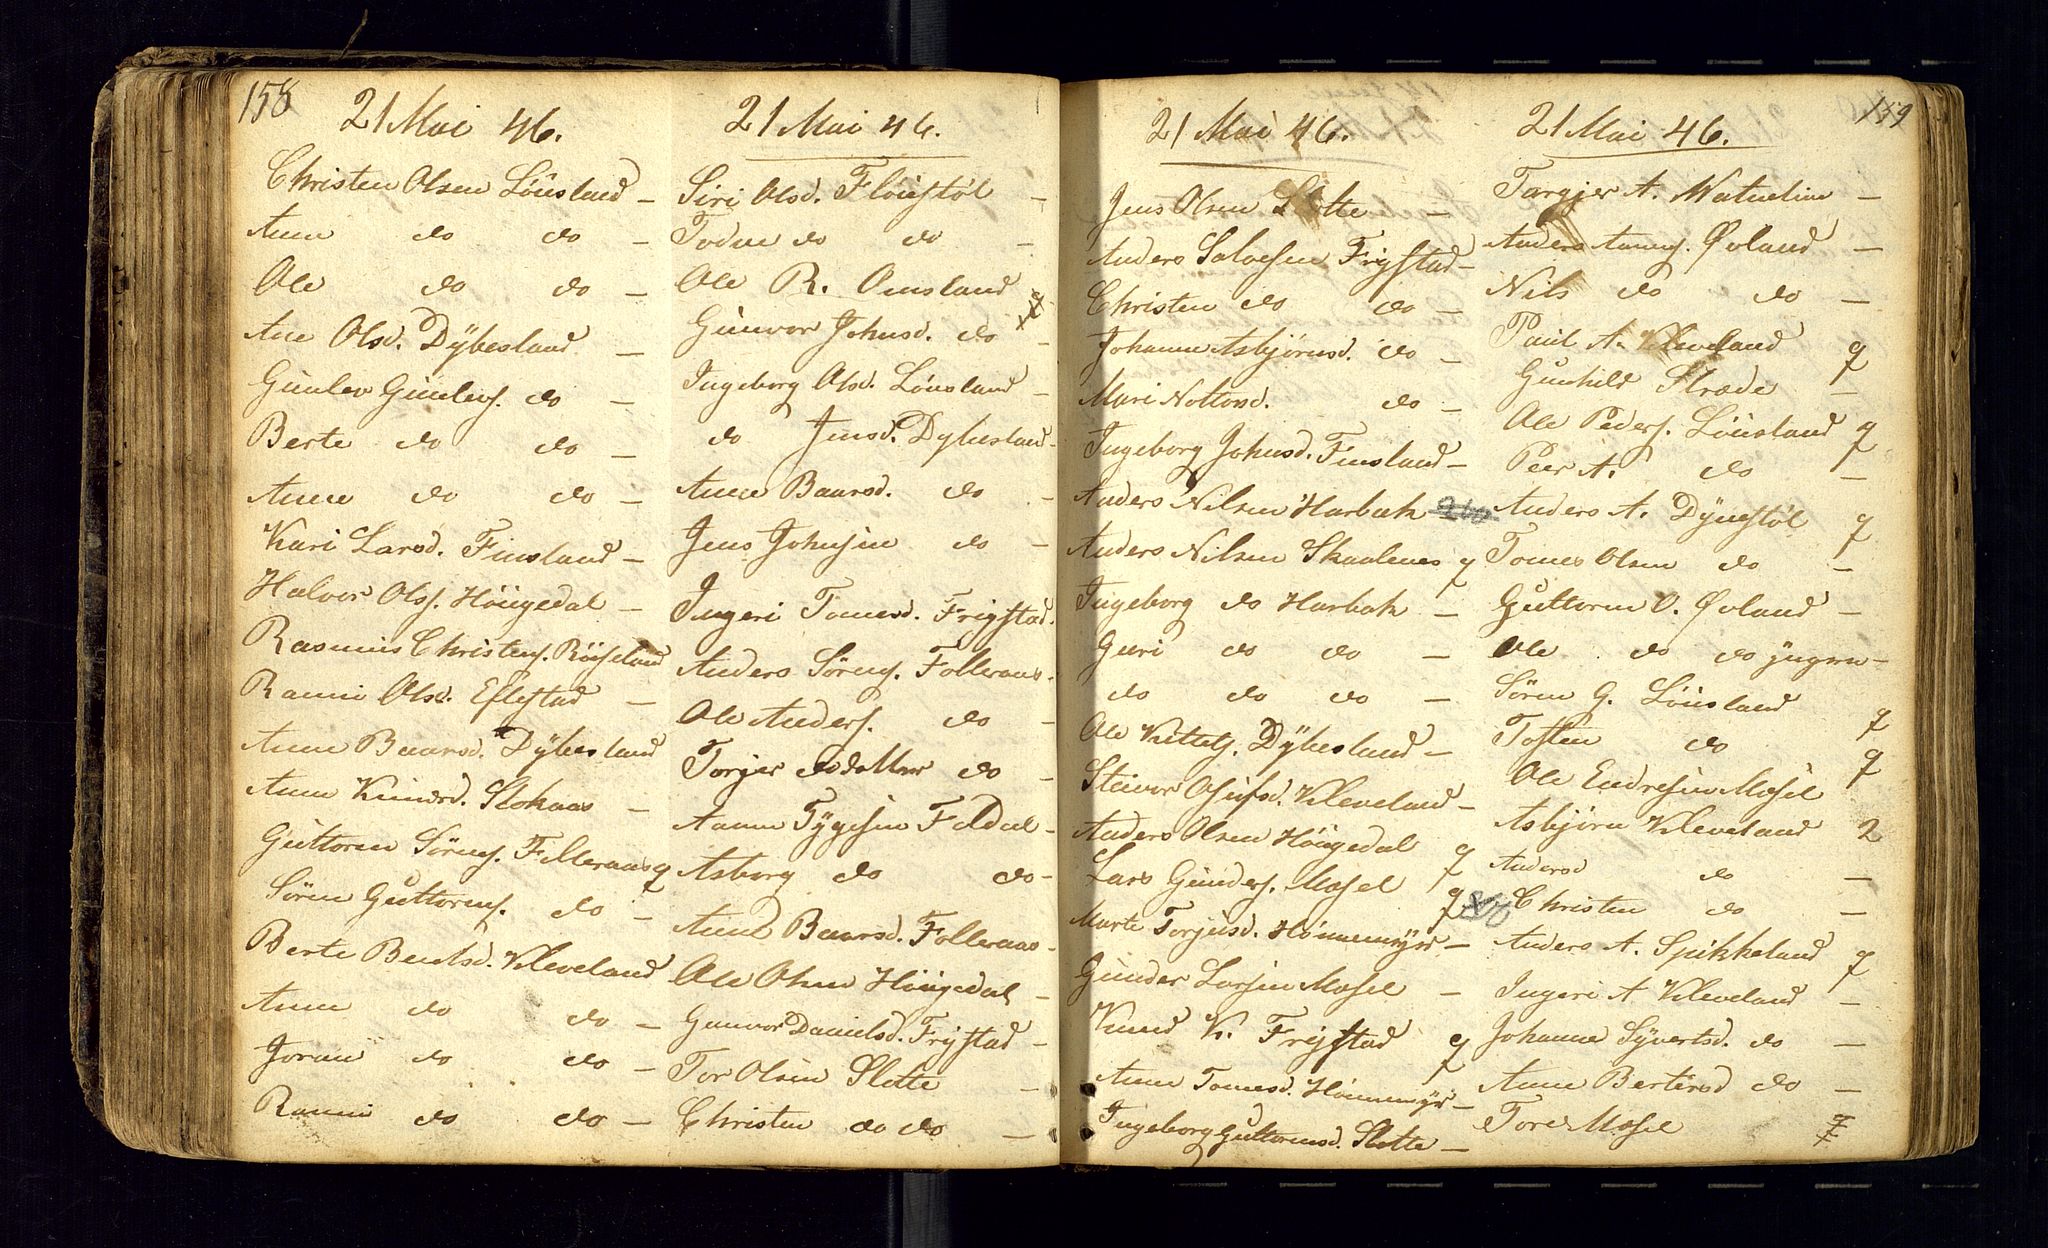 158
21 Mai 46.
Christen Olsen Lönsland -
Anne do do -
Ole do do -
Ane Olsd. Dÿbesland -
Gunlev Gunlevs. do -
Berte do do -
Anne do do -
Kari Larsd. Finsland -
Halvor Olss. Höügedal -
Rasmus Christens. Röiseland
Ranni Olsd. Eftestad -
Anne Baarsd. Dÿbesland
Anne Knudsd. Stokaas -
Guttorm Sörens. Folleraas q
Sören Guttorms. do -
Berte Bentsd. Kleveland
Anne do do -
Joran do do -
Ranni do do -
21 Mai 46.
Siri Olsd. Flöistöl -
Todne do do -
Ole R. Omsland
Gunvor Johnsd. do -
Ingeborg Olsd. Lönsland -
do Jensd. Dybesland -
Anne Baarsd. do -
Jens Johnsen do -
Ingeri Tomesd. Frigstad.
Anders Sörens. Folleraas -
Ole Anders. do -
Torjer do do -
Aanen Tygesen Feldal -
Asborg do do -
Anne Baarsd. Folleraas -
Ole Olsen Höügedal -
Gunvor Danielsd. Frigstad -
Tor Olsen Slotte -
Christen do do -
21 Mai 46.
Jens Olsen Slotte -
Anders Salvesen Frigstad -
Christen do do -
Johanne Asbjörnsd. do -
Mari Nottovsd. do -
Ingeborg Johnsd. Finsland -
Anders Nilsen Harbak 260
Anders Nilsen Skaalenes q
Ingeborg do Harbak -
Guri do do -
do do do -
Ole Kittels. Dÿbesland -
Steinvor Olufsd. Kleveland -
Anders Olsen Höügedal q
Lars Gunders. Mosel q
Marte Torjusd. Hönnemÿr -
Gunder Larsen Mosel -
Knud K. Frigstad q
Anne Tomesd. Hönnemyr -
Ingeborg Guttormsd. Slotte -
159
21 Mai 46.
Targjer A. Watnelien -
Anders Aanens. Øvland -
Nils do do -
Paul A. Kleveland q
Gunhild Stræde -
Ole Peders. Lönsland q
Peer A. do -
Anders A. Dÿnestöl q
Tomes Olsen do -
Guttorm O. Øvland -
Ole do do yngere -
Sören G. Lönsland q
Tosten do q
Ole Endresen Mosel
Asbjörn Kleveland 2
Anders do -
Christen do -
Anders A. Spikkeland q
Ingeri A Kleveland -
Johanne Syvertsd. do -
Anne Bertesd do -
Tore Mosel q